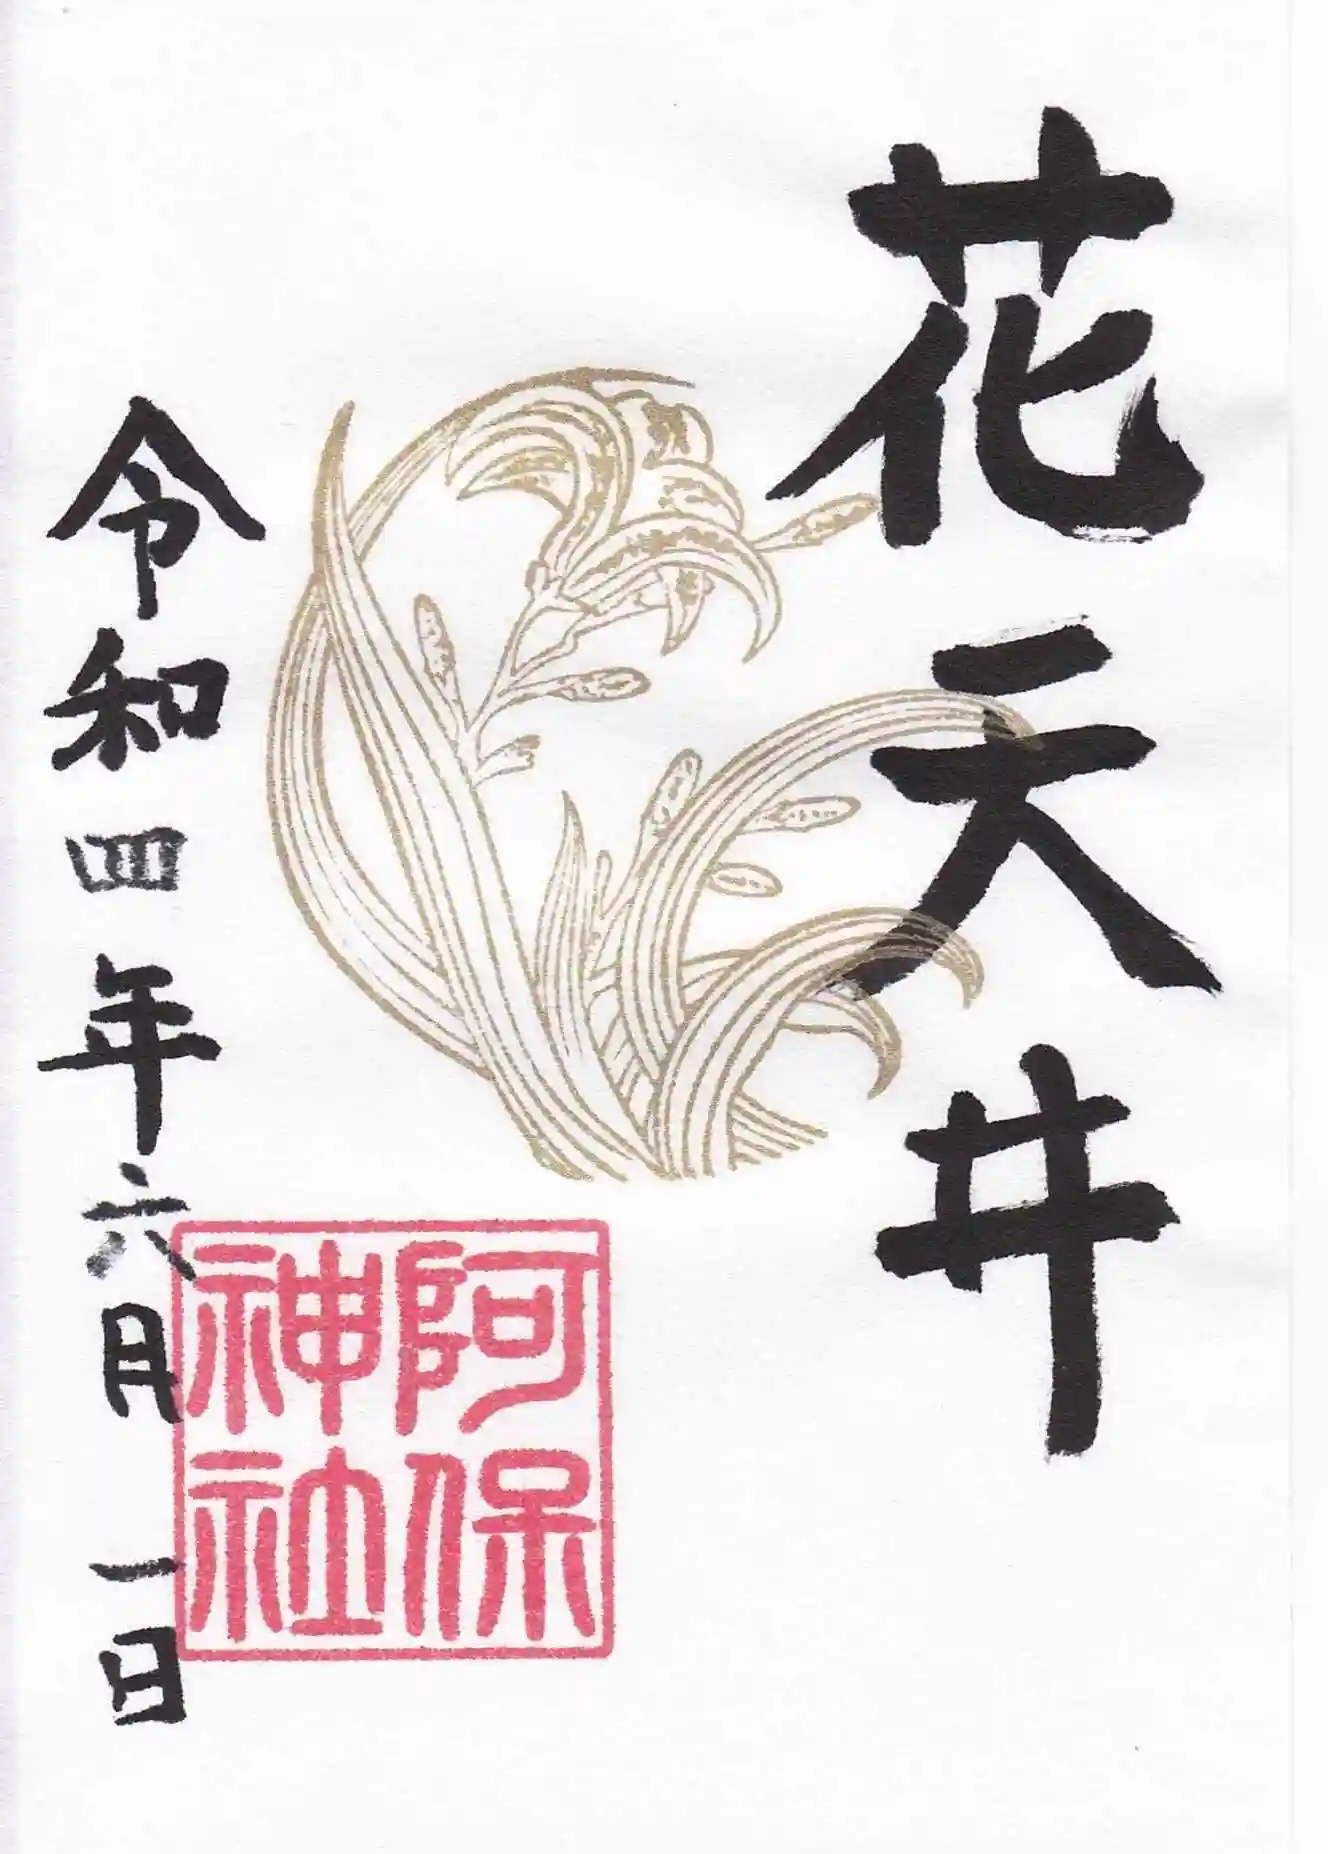 花天井
阿保
神社
令和四年六月一日